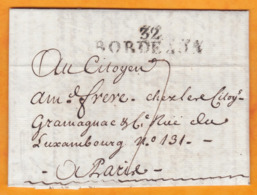 32
BORDEAUX
Au Citoyen
am.d frere chez les Citoy.
Gramagnac & C.e Rue du
Luxambourg N.o 131.
A Paris